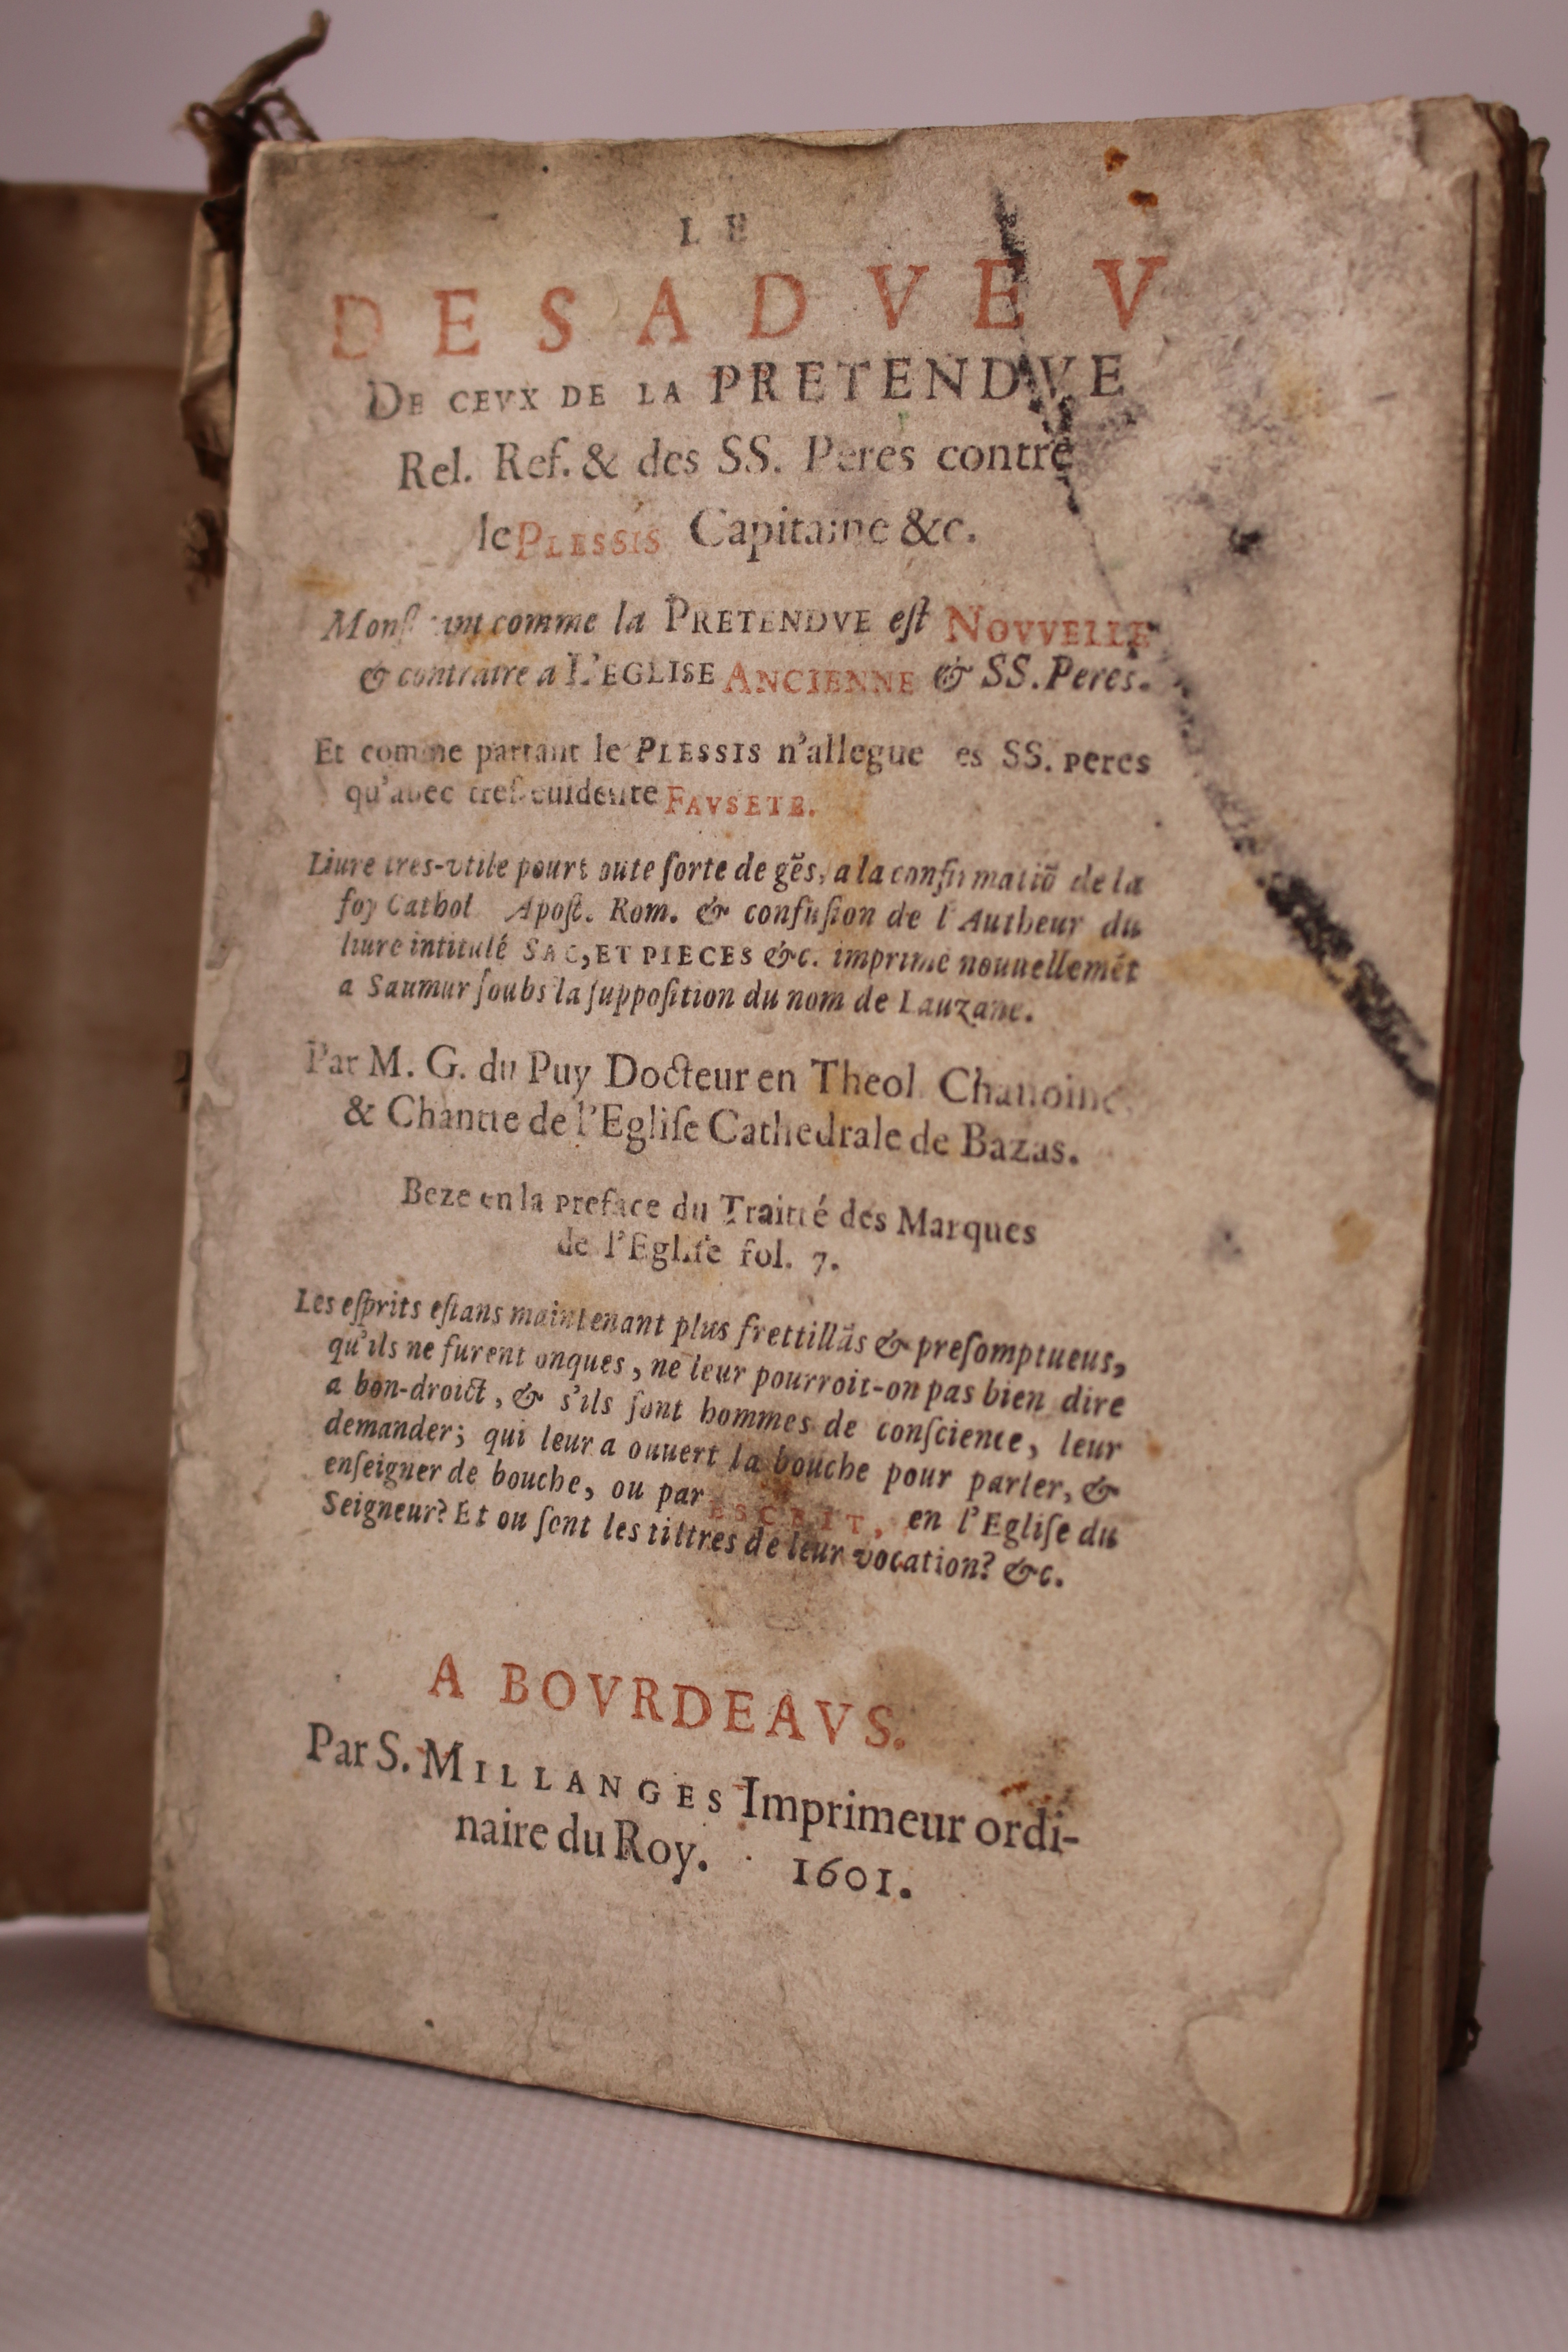 LE
DESADVEV
DE CEVX DE LA PRETENDVE
Rel. Ref. & des SS. Peres contre
le PLESSIS Capitaine &c.
comme la PRETENDVE eſt NOVVELLE
& contraire a L'EGLISE ANCIENNE & SS. Peres.
Et comme partant le PLESSIS n'allegue es SS. peres
qu'auec treſ-euidente FAVSETE.
Liure tres-vtile pour toute ſorte de gẽs, a la confirmatiõ de la
foy Cathol Apoſt. Rom. & confuſion de l'Autheur du
liure intitulé SAC, ET PIECES &c. imprimé nouuellemẽt
a Saumur ſoubs la ſuppoſition du nom de Lauzane.
Par M. G. du Puy Docteur en Theol. Chanoine
& Chantre de l'Egliſe Cathedrale de Bazas.
Beze en la preface du Traitté des Marques
de l'Egliſe fol. 7.
Les eſprits eſtans maintenant plus frettillãs & preſomptueus,
qu'ils ne furent onques, ne leur pourroit-on pas bien dire
a bon-droict, & s'ils ſont hommes de conſcience, leur
demander; qui leur a ouuert la bouche pour parler, &
enſeigner de bouche, ou par ESCRIT, en l'Egliſe du
Seigneur? Et ou ſont les tiltres de leur vocation? &c.
A BOVRDEAVS.
Par S. MILLANGES Imprimeur ordi-
naire du Roy. 1601.